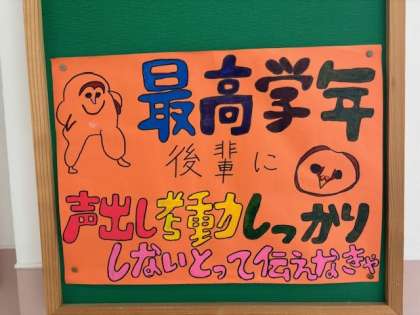 最高学年
後輩に
声出し行動しっかり
しないとって伝えなきゃ